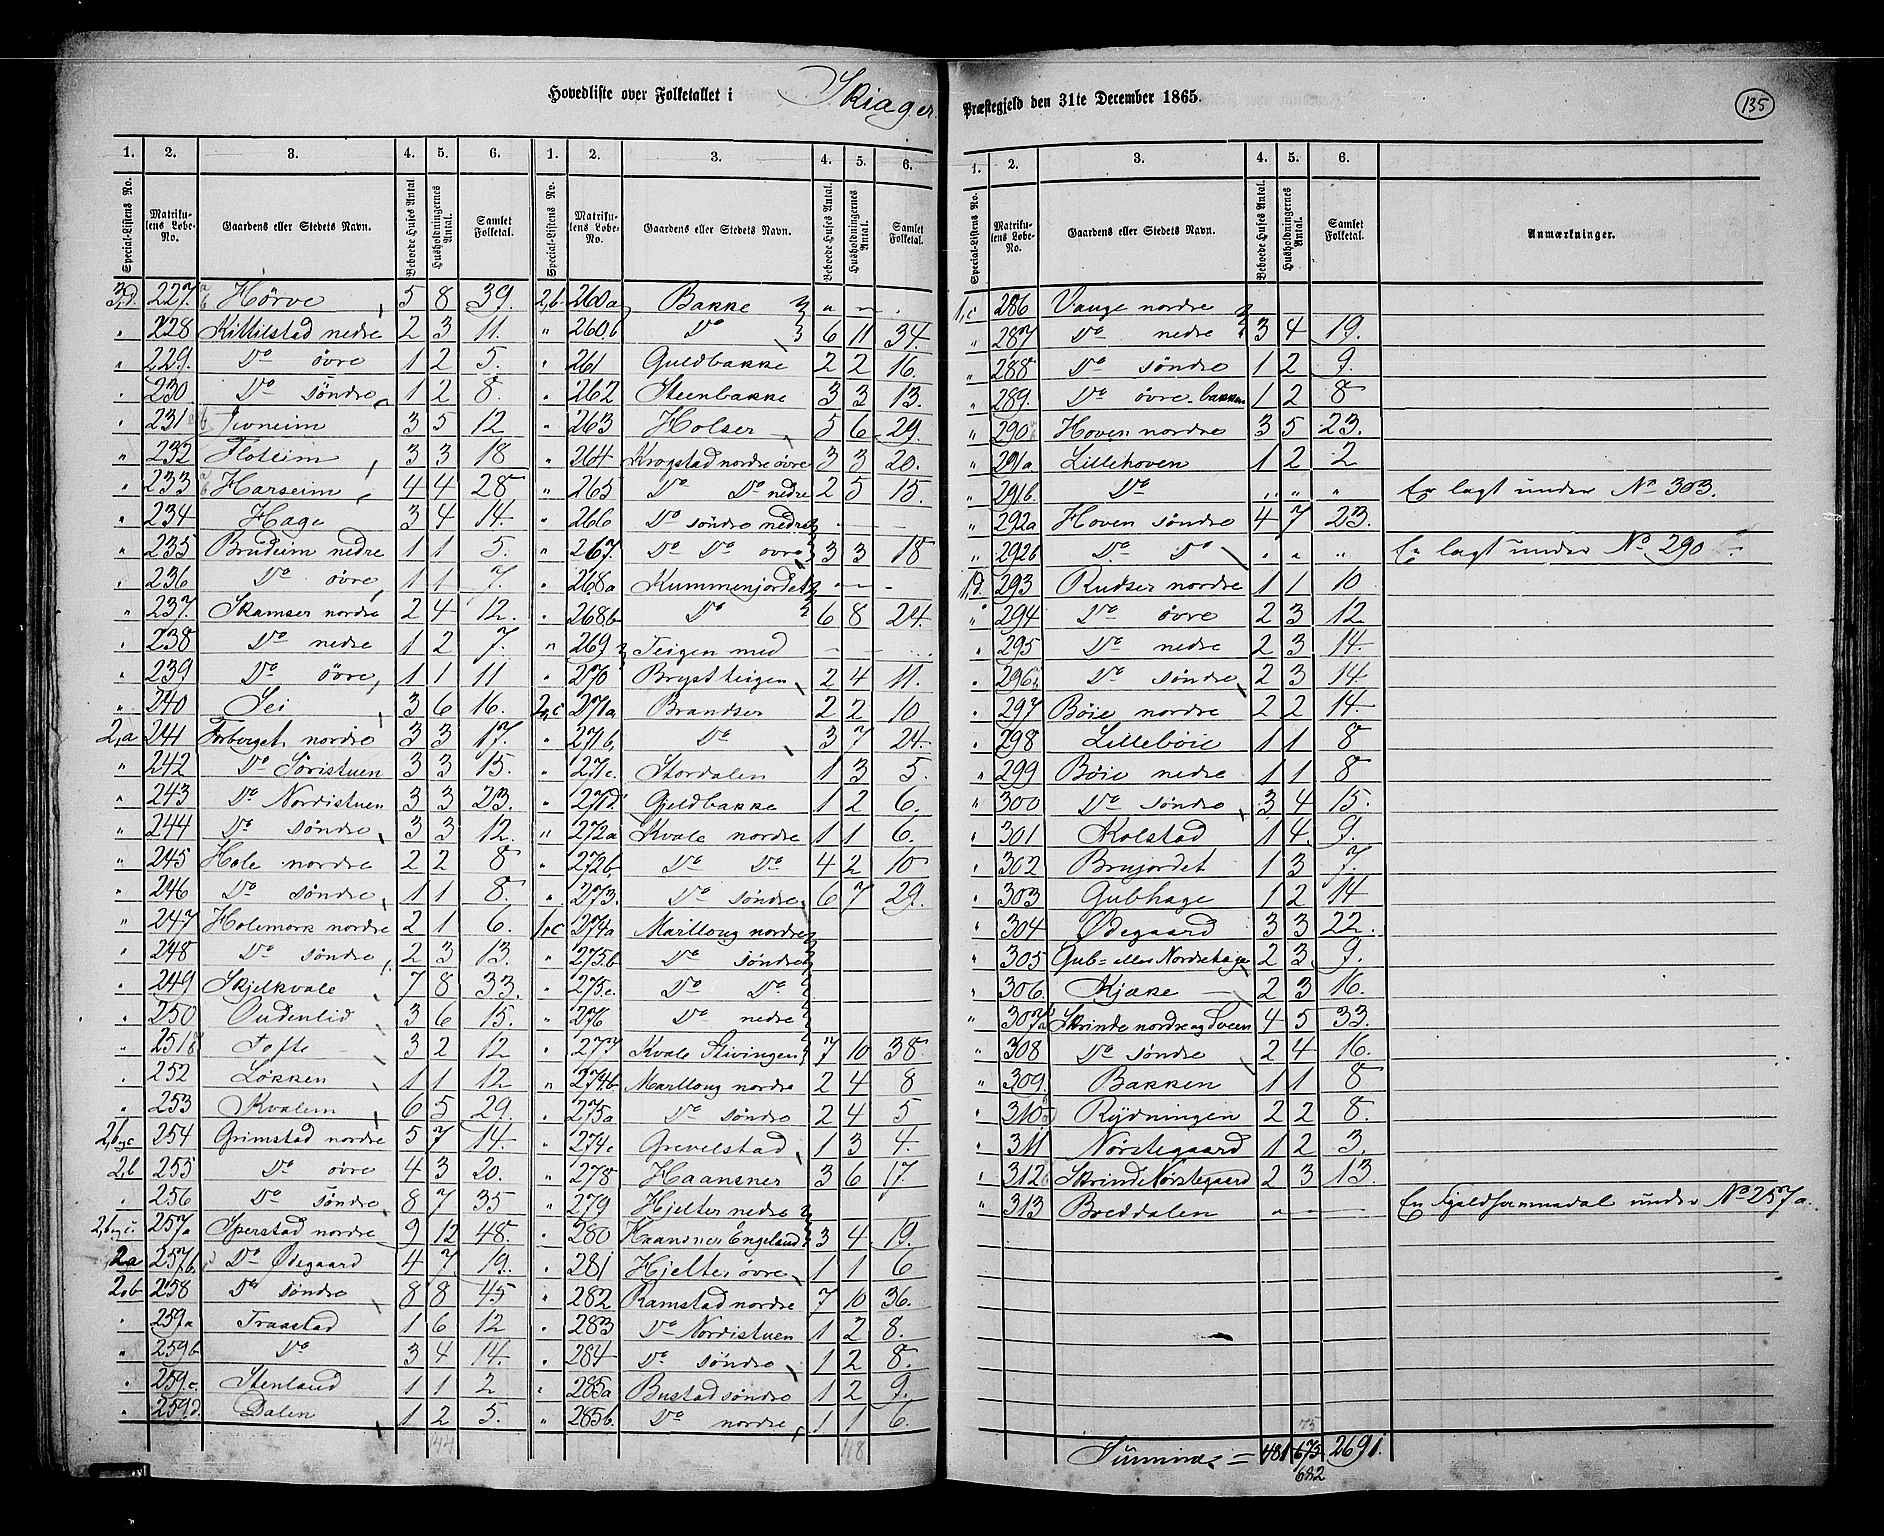 Hovedliste over Folketallet i Skiager Præstegjeld den 31te December 1865.
135
1. 2. 3. 4. 5. 6.
Special-Listens No. Matrikulens Løbe-No. Gaardens eller Stedets Navn. Beboede Huses Antal Husholdningernes Antal. Samlet Folketal.
3,d. 227. a b Hörve 5 8 39.
" 228 Kittilstad nedre 2 3 11.
" 229. Do övre 1 2 5.
" 230 Do söndre 1 2 8.
" 231 3 5 12
" 232 Floteim 3 3 18
" 233 a b Harseim 4 4 28
" 234 Hage 3 4 14.
" 235 Brudeim nedre 1 1 5.
" 236 Do övre 1 1 7.
" 237. Skamser nordre 2 4 12.
" 238 Do nedre 1 2 7.
" 239 Do övre 1 1 11
" 240 Sei 3 6 16.
2,a 241 Forberget nordre 3 3 17.
" 242 Do Söristuen 3 3 15.
" 243 Do Nordistuen 3 3 23.
" 244 Do söndre 3 3 12.
" 245 Hole nordre 2 2 8
" 246 Do söndre 1 1 8.
" 247 Holemork nordre 2 1 6.
" 248 Do söndre 2 3 13.
" 249 Skjelkvale 7 8 33.
" 250 Oudenlid 3 6 15.
" 251 Tofte 3 2 12
" 252 Lökken 1 1 12
" 253 Kvalem 6 5 29.
2,b og c 254 Grimstad nordre 5 7 14.
2,b 255 Do övre 4 3 20.
" 256 Do söndre 8 7 35
2,b og c. 257a Sperstad nordre 9 12 48.
2a 257b Do Ødegaard 4 7 19.
2,b 258 Do söndre 8 8 45
" 259a Traastad 1 6 12
" 259b Do 3 4 14.
" 259c. Stenland 1 1 2
" 259d. Dalen 1 2 5.
144
1. 2. 3. 4. 5. 6.
Special-Listens No. Matrikulens Løbe-No. Gaardens eller Stedets Navn. Beboede Huses Antal. Husholdningernes Antal. Samlet Folketal.
2,b 260a Bakke " — .
" 260b Do 6 11 34.
" 261 Guldbakke 2 2 16.
" 262 Steenbakke 3 3 13.
" 263 Holser 5 6 29.
" 264 Krogstad nordre övre 3 3 20.
" 265 Do Do nedre 2 5 15.
" 266 Do söndre nedre . — —
" 267. Do Do övre 3 3 18
" 268a Kummenjordet " — —
" 268b Do 6 8 24.
" 269 Teigen med — — .
" 270 Brystteigen 2 4 11.
2,c 271a Brandser 2 2 10
" 271b Do 3 7 24.
" 271c. Stordalen 1 3 5.
" 271d Geldbakke 1 2 6.
" 272a Kvale nordre 1 1 6.
" 272b Do Do 4 2 10
" 273. Do söndre 6 7 29.
1,c 274a Marlloug nordre
" 275b Do söndre
" 275c. Do Do
" 276 Do nedre
" 277 Kvale Stivingen 7 10 38.
" 274b Marlloug nordre 2 4 8
" 275a Do söndre 2 4 5
" 274c Grevelstad 1 3 4.
" 278 Haansner 3 6 17.
" 279 Hjelter nedre
" 280 Haansner Engeland 3 4 19.
" 281 Hjelter övre 1 1 6
" 282 Ramstad nordre 7 10 36.
" 283 Do Nordistuen 1 2 8.
" 284 Do söndre 1 2 8.
" 285a Bustad söndre 1 2 9.
" 285b. Do nordre 1 1 6.
118
1. 2. 3. 4. 5. 6.
Special-Listens No. Matrikulens Løbe-No. Gaardens eller Stedets Navn. Beboede Huses Antal. Husholdningernes Antal. Samlet Folketal. Anmærkninger.
1,c 286 Vange nordre
" 287 Do nedre 3 4 19.
" 288 Do söndre 1 2 9.
" 289. Do övre bakken 1 2 8
" 290 Hoven nordre 3 5 23.
" 291a Lillehoven 1 2 2
" 291b. Do " " " Er lagt under No 303.
" 292a Hoven söndre 4 7 23.
" 292b Do Do " " " Er lagt under No 290
1,d. 293 Rudser nordre 1 1 10
" 294 Do övre 2 3 12
" 295 Do nedre 2 3 14.
" 296 Do söndre 2 3 14
" 297 Böie nordre 2 2 14.
" 298 Lilleböie 1 1 8
" 299 Böie nedre 1 1 8
" 300 Do söndre 3 4 15.
" 301 Kolstad 1 4 9.
" 302 Brujordet 1 3 7.
" 303 Gubhage 1 2 14
" 304 Ødegaard 3 3 22.
" 305 Gub= eller Nordrehage 2 3 9.
" 306. Kjæke 2 3 16.
" 307 Skrinde nordre og Sveen 4 5 33.
" 308 Do söndre 2 4 16.
" 309. Bakken 1 1 8
" 310 Rydningen 2 2 8.
" 311 Nörstegaard 1 2 3.
" 312 Skrinde Nörstegaard 2 3 13.
" 313 Breddalen " — — En Fjeldfremnadal under No 257a.
75
Summa = 481 675 2691.
682